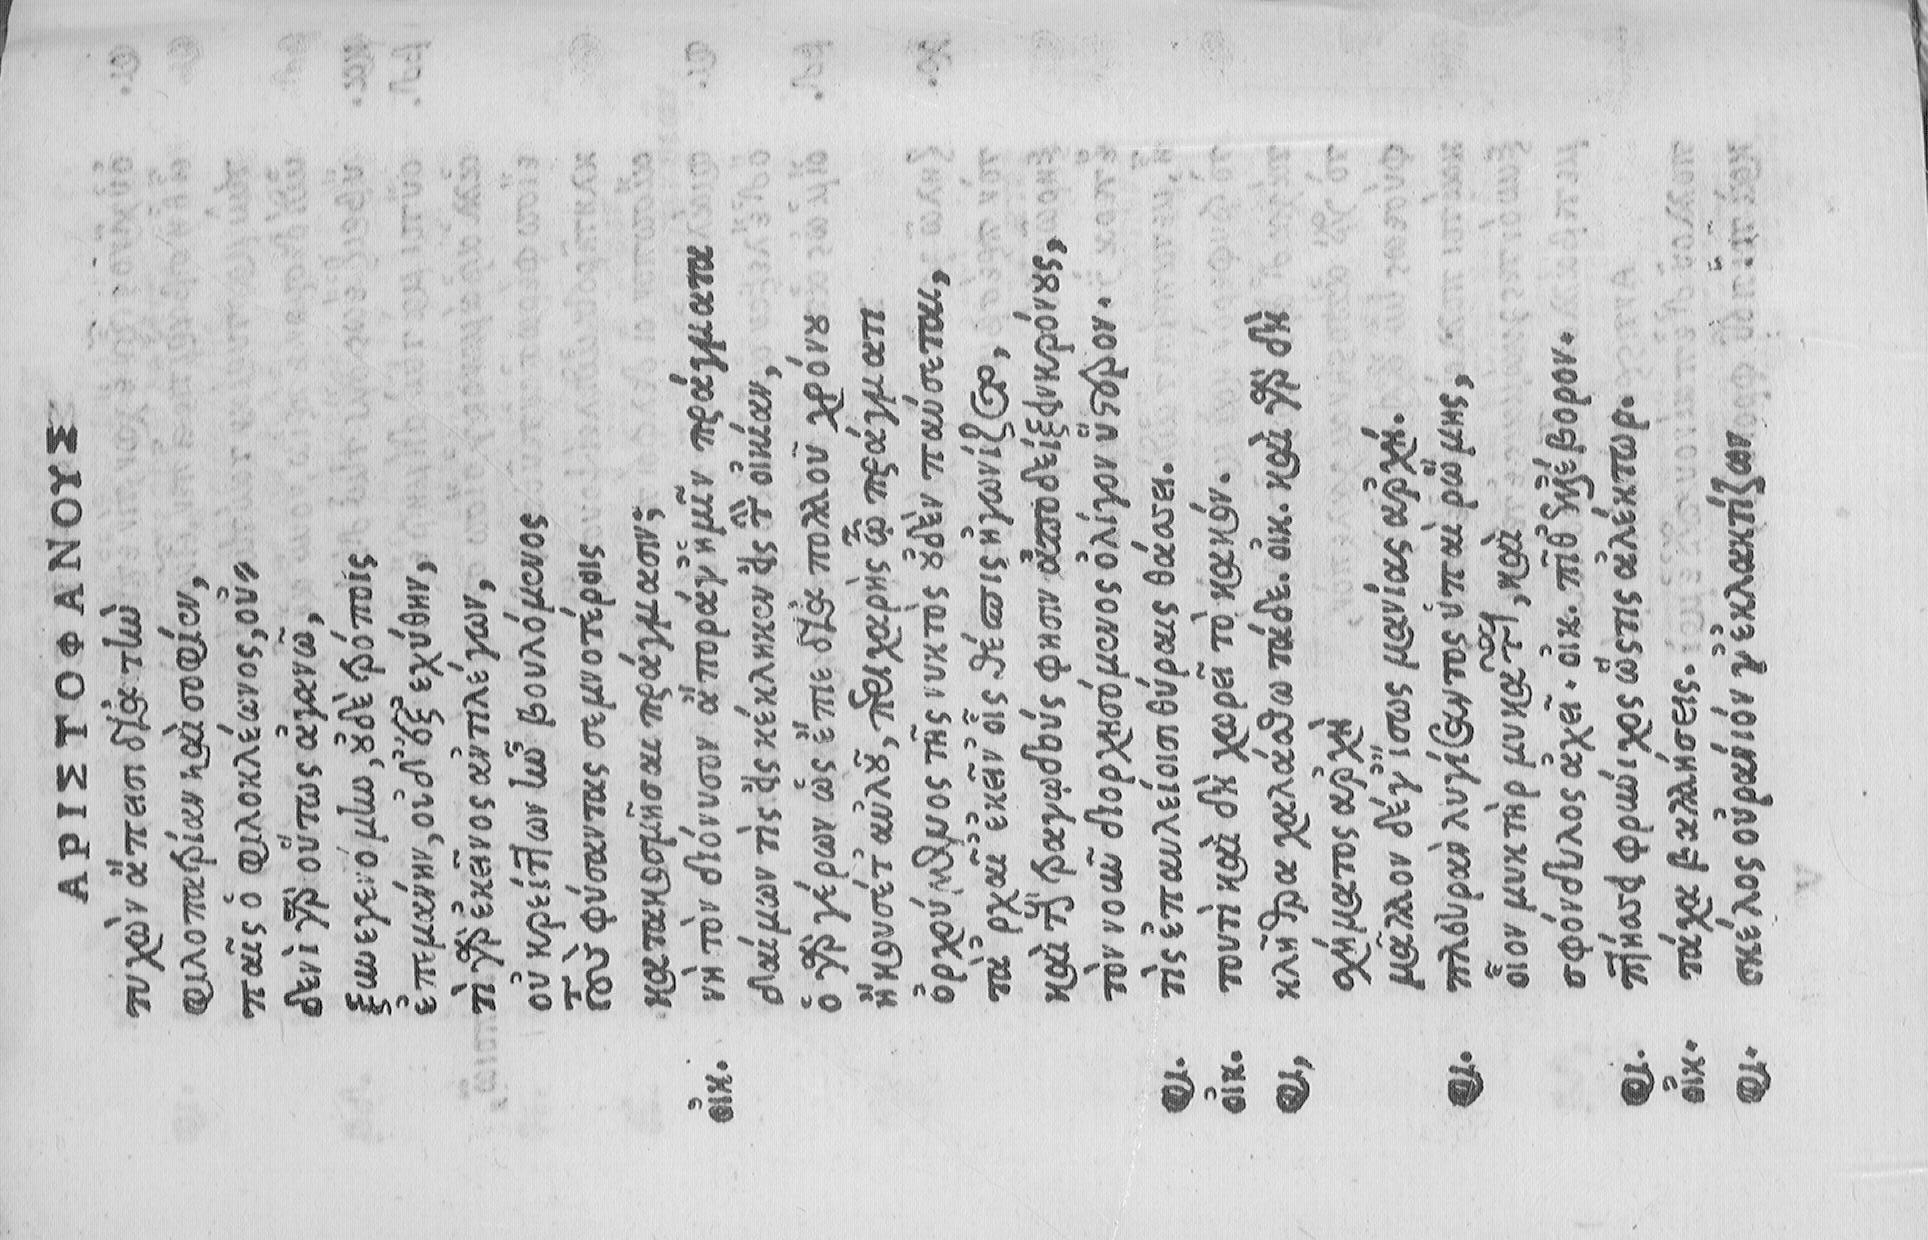 ΑΡΙΣΤΟΦΑΝΟΥΣ
τυχὼν ἄπεισι διὰ τὴν
φιλοπατρίαν καὶ σοφίαν,
παῖς ὁ φιλοκλέωνος, οὐ-
δενὶ γὰρ οὕτως ἀγανῷ,
ξυνεγενόμην, οὐδὲ τρόποις
ἐπεμάνην, οὐδ' ἐξεχύθην,
τί γὰρ ἐκεῖνος ἀντιλέγων,
οὐ κρείττων ἦν βουλόμενος
τοὺς φύσαντας σεμνοτέροις
κατακοσμῆσαι πράγμασι;
οἰκ. νὴ τὸν διόνυσον ἄπορά γ' ἡμῖν πράγματα
δαίμων τὶς ἐσκέκληκεν ἐς τὴν οἰκίαν,
ὁ γὰρ γέρων ὡς ἔπιε διὰ πολλοῦ χρόνου
ἤκουσέτ' αὐλοῦ, περιχαρὴς τῷ πράγματι
ὀρχούμενος τῆς νυκτὸς οὐδὲν παύσεται,
τὰ ἀρχαῖ' ἐκεῖν' οἷς θέσπις ἠγωνίζετο,
καὶ τοὺς τραγῳδούς φησιν ἀποδείξειν κρόνους,
τὸν νοῦν διορχησόμενος ὀλίγον ὕστερον.
φι. τὶς ἐπ' αὐλείοισι θύραις θάσσει.
οἰκ. τουτὶ καὶ δὴ χωρεῖ τὸ κακόν.
φι, κλῆθρα χαλάσθω τάδε. οἰκ. καὶ γὰρ δὴ
σχήματος ἀρχὴ
μᾶλλον δέ γ' ἴσως μανίας ἀρχή.
φι. πλευρὰν λυγίσαντος ὑπαὶ ῥώμης,
οἷον μυκτὴρ μυκᾶται, καὶ
σφόνδυλος ἀχεῖ. οἰκ. πῖθ' ἑλλέβορον.
φι. πτήσσει φρύνιχος ὥς τις ἀλέκτωρ.
οἰκ. τάχα βαλλήσεις.
φι. σκέλος οὐράνιόν γ' ἐκλακτίζων